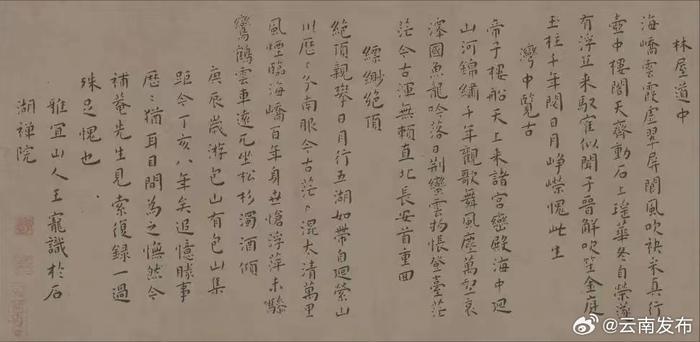 林屋道中
海嶠雲霞虛翠屏閬風吹袂来真行
壺中樓閣天齊動石上瑤華冬自榮遂
有浮丘来馭寉似聞子晉解吹笙金庭
玉柱千年閟日月崢嶸愧此生
灣中覽古
帝子樓船天上来諸宮巒殿海中廻
山河錦繡千年觀歌舞風塵萬壑哀
澤國魚龍吟落日荆蠻雲物悵登臺茫
茫今古渾無賴直北長安首重囬
縹緲絕頂
絕頂親攀日月行五湖如帶自迴縈山
川歷〻分南眼今古茫〻混太清萬里
風煙臨海嶠百年身世愴浮萍未驂
鸞鶴雲車遠兀坐松杉濁酒傾
庚辰歲游包山有包山集
距今丁亥八年矣追憶勝事
歷〻猶耳目間為之憮然今
補菴先生見索復録一過
殊足愧也
雅宜山人王寵識於石
湖禪院
@云南发布